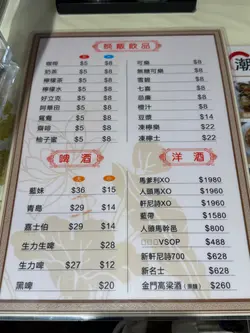 熱廠飲品
咖啡 $5 $8
奶茶 $5 $8
檸檬茶 $5 $8
檸檬水 $5 $8
好立克 $5 $8
阿華田 $5 $8
鴛鴦 $5 $8
齋啡 $5 $8
柚子蜜 $5 $8
可樂 $8
無糖可樂 $8
雪碧 $8
七喜 $8
忌廉 $8
橙汁 $8
豆漿 $14
凍檸樂 $22
凍檸士 $22
啤酒
藍妹 $36 $15
青島 $29 $14
嘉士伯 $29 $14
生力生啤 $28
生力啤 $27 $12
黑啤 $20
洋酒
馬爹利XO $1980
人頭馬XO $1960
軒尼詩XO $1960
藍帶 $1580
人頭馬幹邑 $888
VSOP $488
新軒尼詩700 $628
新名士 $628
金門高粱酒 $260
潮